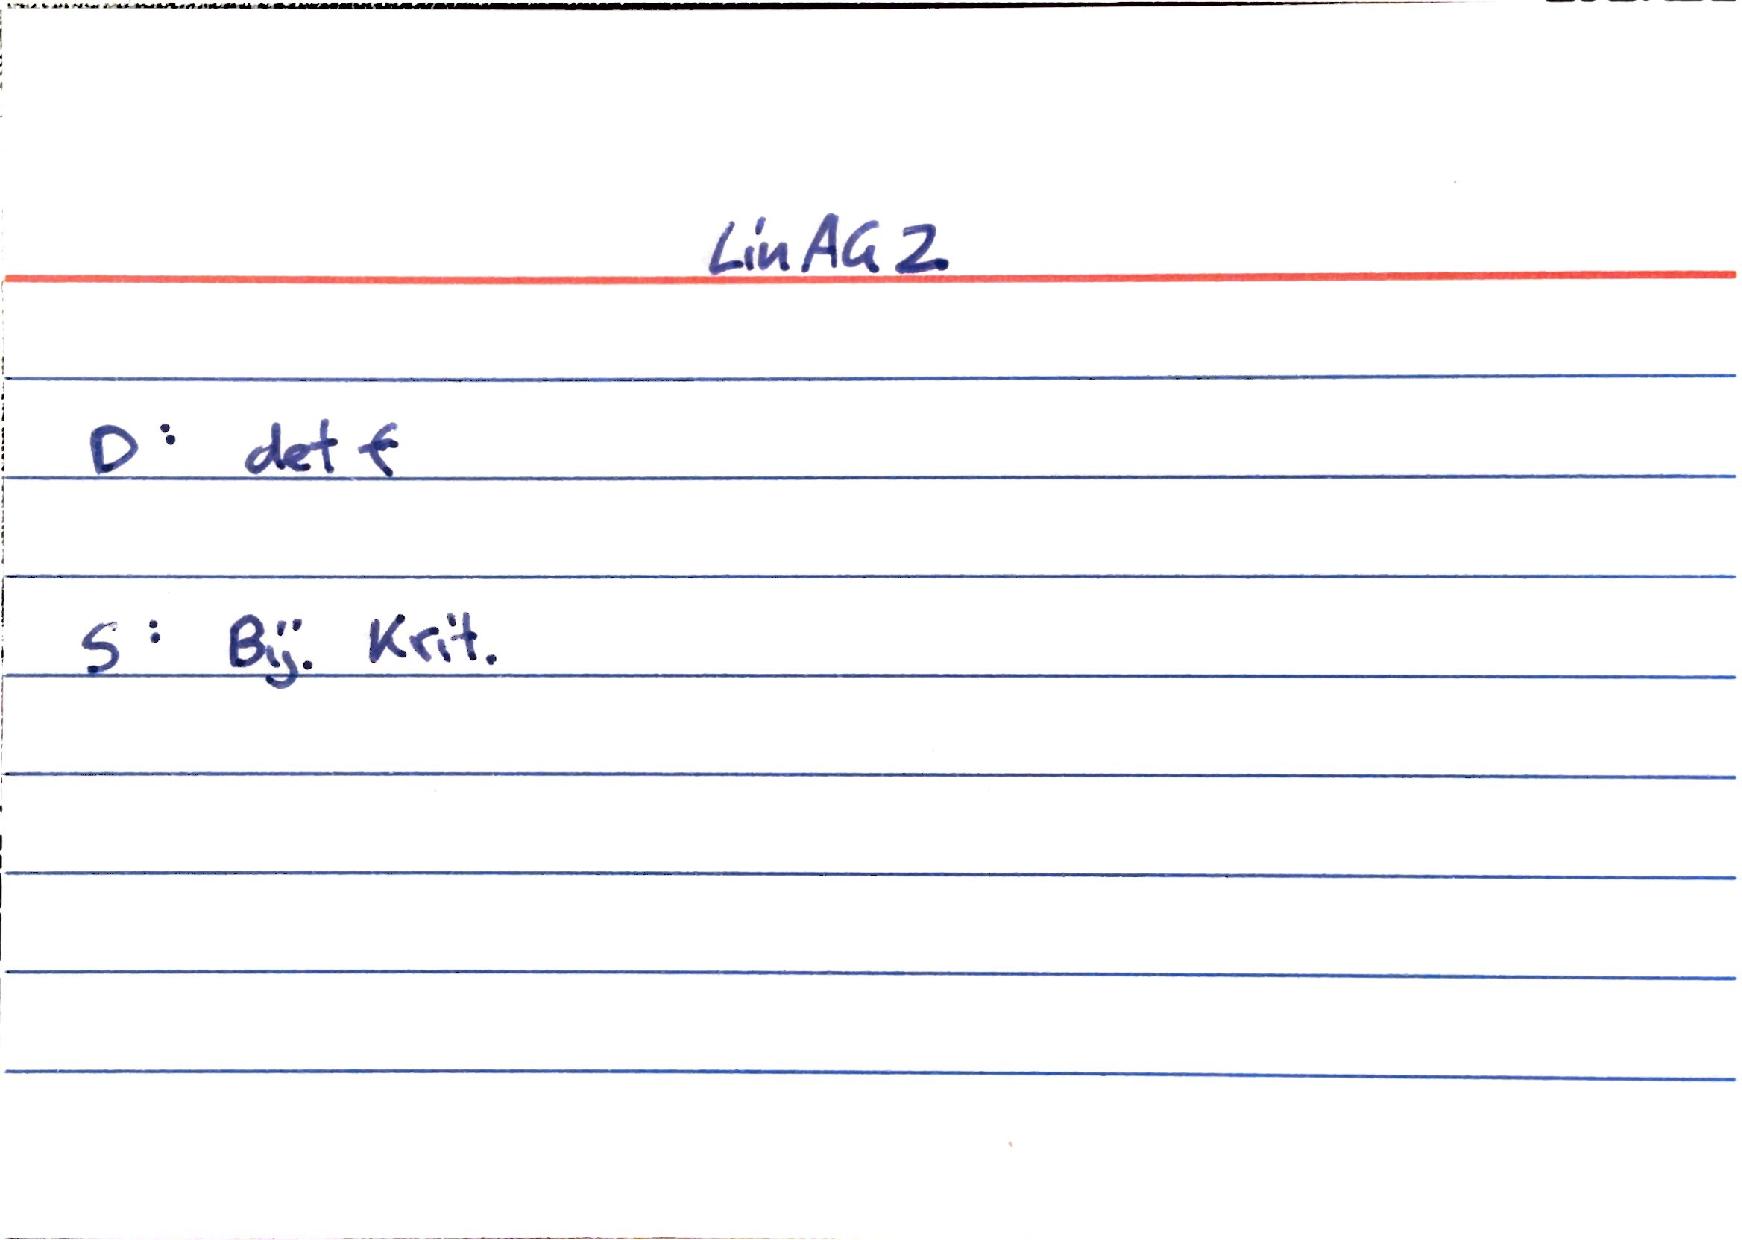 LinAG 2
D: det f
S: Bij. Krit.